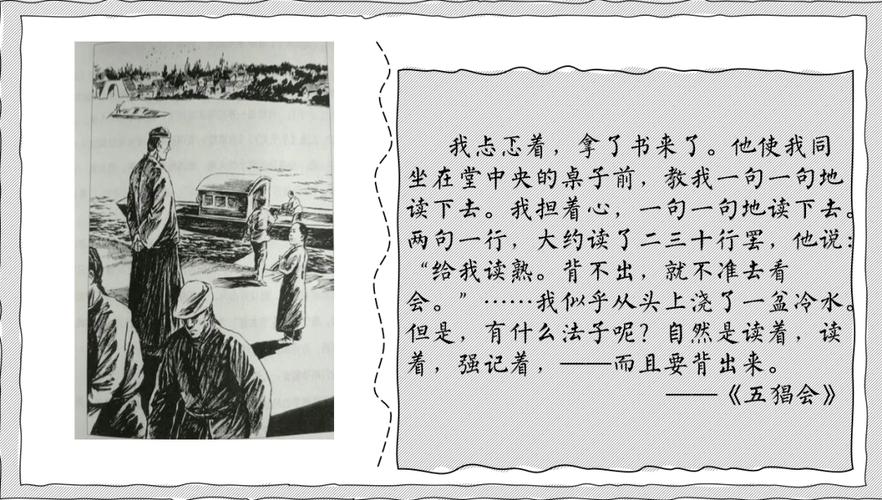 我忐忑着，拿了书来了。他使我同
坐在堂中央的桌子前，教我一句一句地
读下去。我担着心，一句一句地读下去。
两句一行，大约读了二三十行罢，他说：
“给我读熟。背不出，就不准去看
会。”……我似乎从头上浇了一盆冷水。
但是，有什么法子呢？自然是读着，读
着，强记着，——而且要背出来。
——《五猖会》